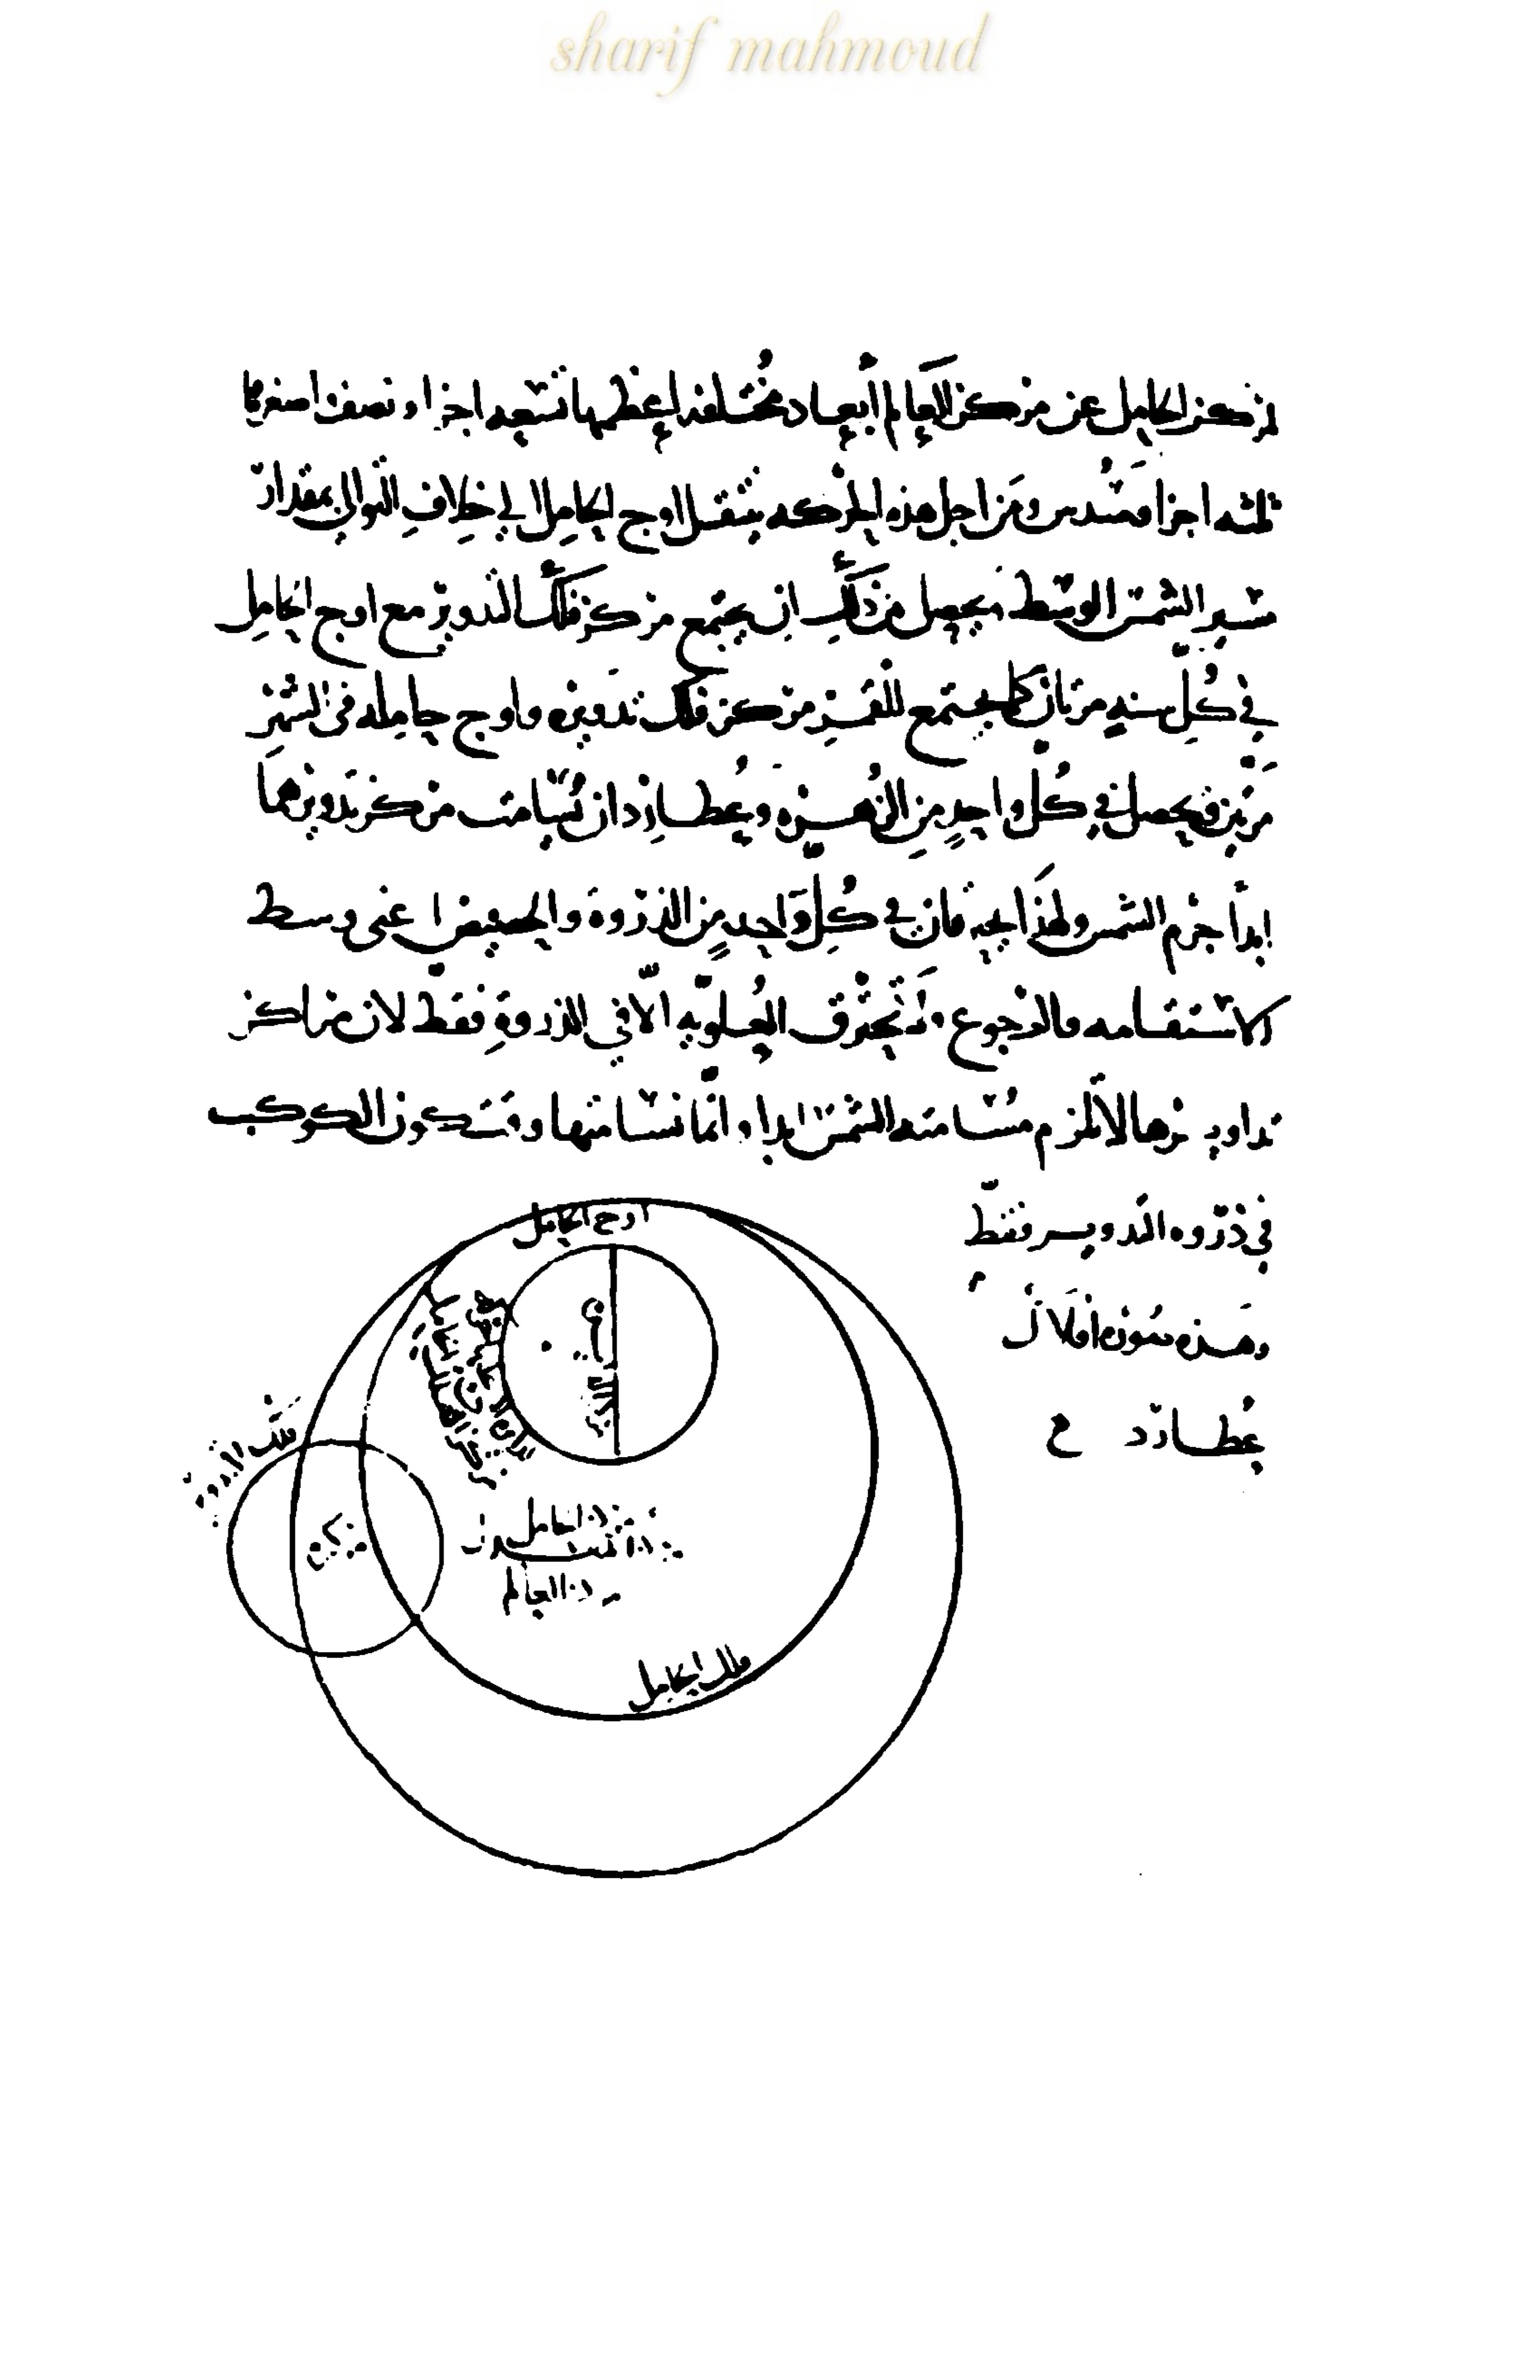 sharif mahmoud
مركز الحامل عن مركز العالم أبعاد مختلفه اعظمها تسعه اجزا ونصف واصغرها
ثلثه اجزا وسدس ومن اجل هذه الحركه ينتقل اوج الحامل الى خلاف التوالي بمقدار
مسير الشمس الوسط فيحصل من ذلك ان يجتمع مركز فلك التدوير مع اوج الحامل
في كُلّ سنه مرتان كما يجتمع للقمر مركز فلك تدويره واوج حامله في الشهر
مرتين فيحصل في كُل واحدٍ مِن الزُهره وعُطارد ان يُسامت مركز تدويرهما
ابداً جرم الشمس ولهذا يحترقان في كُلِّ وَاحدٍ مِن الذروة والحضيض اعنى وسط
الاستقامه والرجوع ولم تحترق العُلويّه الّا في الذروةِ فقط لان مراكز
تداويرها لا تلزم مُسامته الشمس ابدا وانّما تسامتها وقت كون الكوكب
في ذروه التدوير فقط
وهذه صُوره افلاك
عُطارد ع
اوج الحامل
فلك التدوير
مركز
مركز الحامل
مركز العالم
فلك الحامل